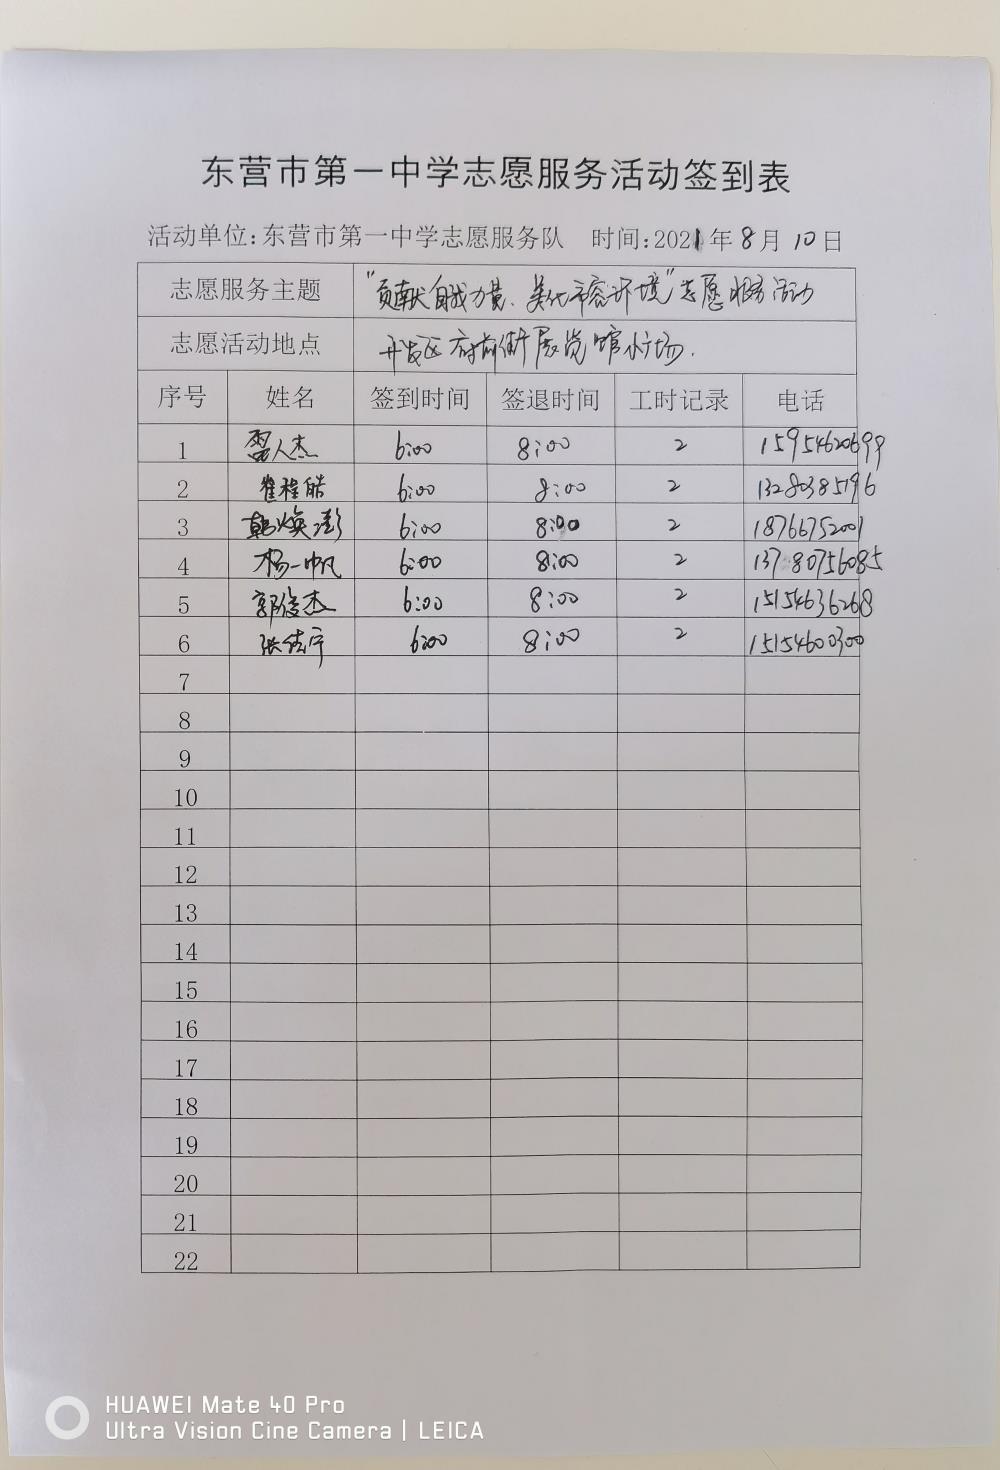 东营市第一中学志愿服务活动签到表
活动单位:东营市第一中学志愿服务队 时间:2021年8月10日
志愿服务主题 "贡献自我力量、美化市容环境"志愿服务活动
志愿活动地点 开发区府前街展览馆小广场.
序号 姓名 签到时间 签退时间 工时记录 电话
1 雷人杰 6:00 8:00 2 15954620699
2 崔程皓 6:00 8:00 2 13280385196
3 韩焕澎 6:00 8:00 2 18766752001
4 杨一帆 6:00 8:00 2 13780756085
5 郭俊杰 6:00 8:00 2 15154636268
6 张佳宁 6:00 8:00 2 15154600300
7
8
9
10
11
12
13
14
15
16
17
18
19
20
21
22
HUAWEI Mate 40 Pro
Ultra Vision Cine Camera | LEICA